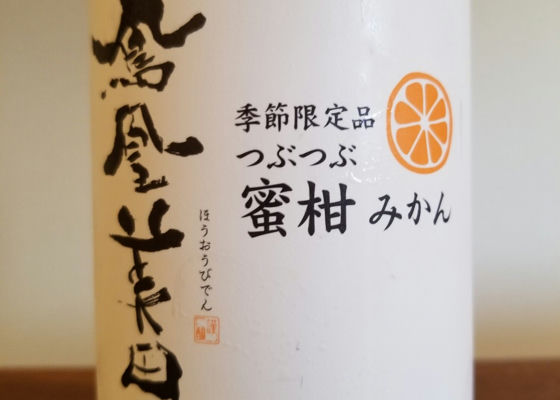 鳳凰美田
ほうおうびでん
季節限定品
つぶつぶ
蜜柑 みかん